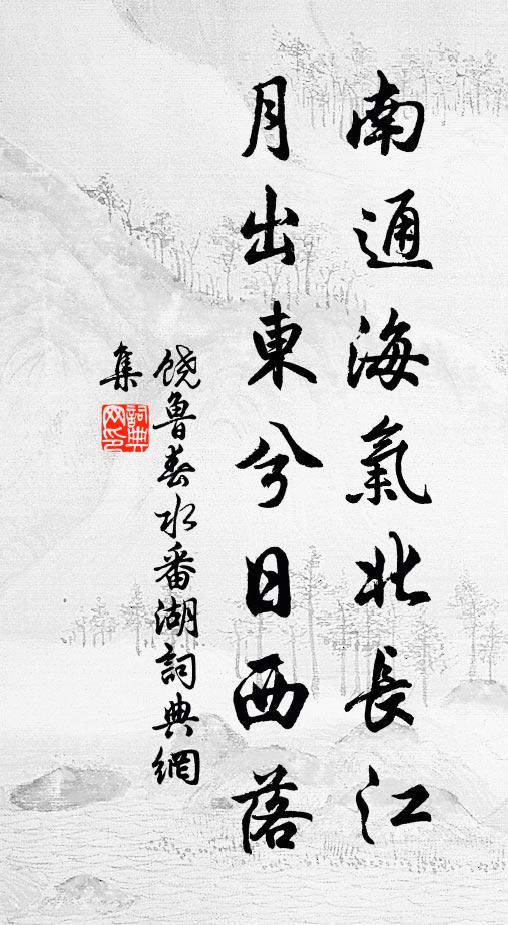 南通海氣北長江
月出東兮日西落
饶魯春水番湖詞典網
集
詞典網印